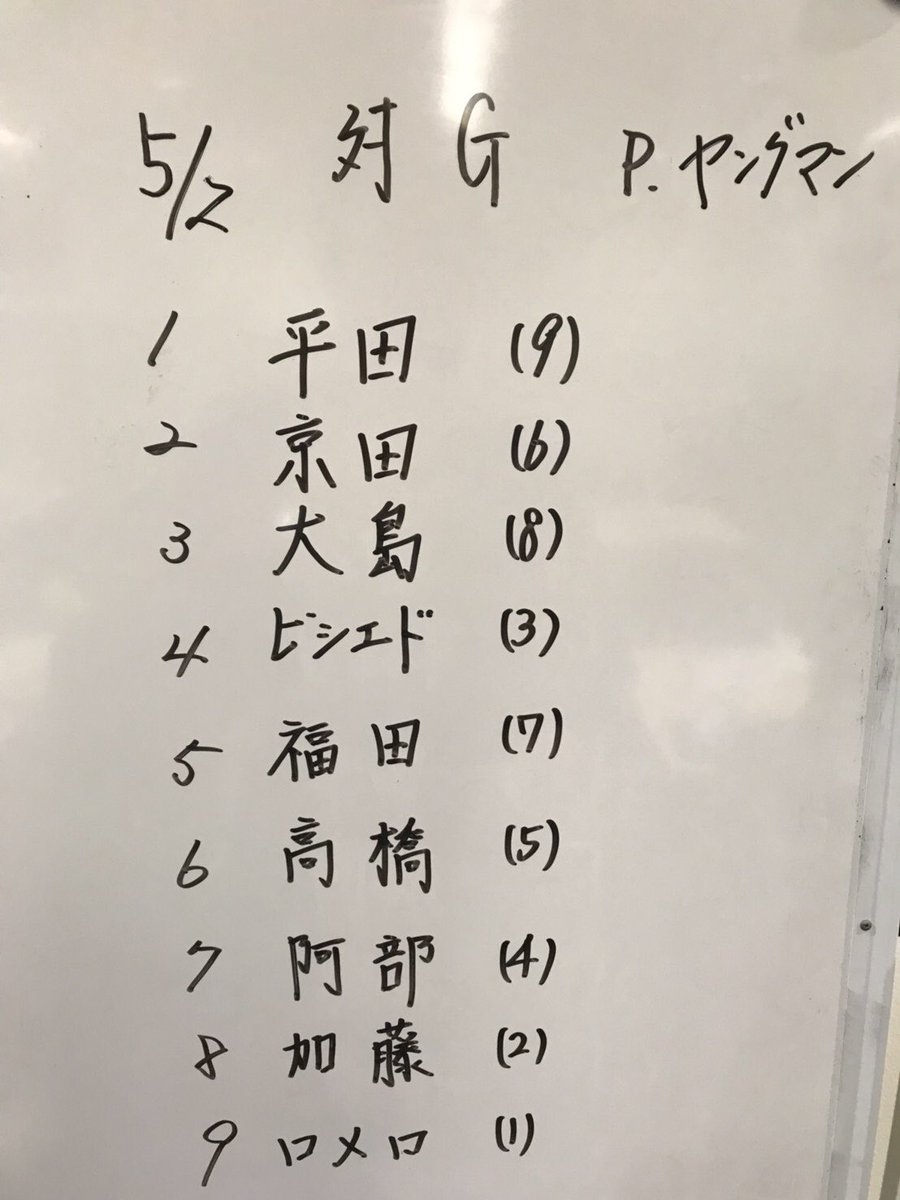 5/2 対 G P. ヤングマン
1 平田 (9)
2 京田 (6)
3 大島 (8)
4 ビシエド (3)
5 福田 (7)
6 高橋 (5)
7 阿部 (4)
8 加藤 (2)
9 ロメロ (1)